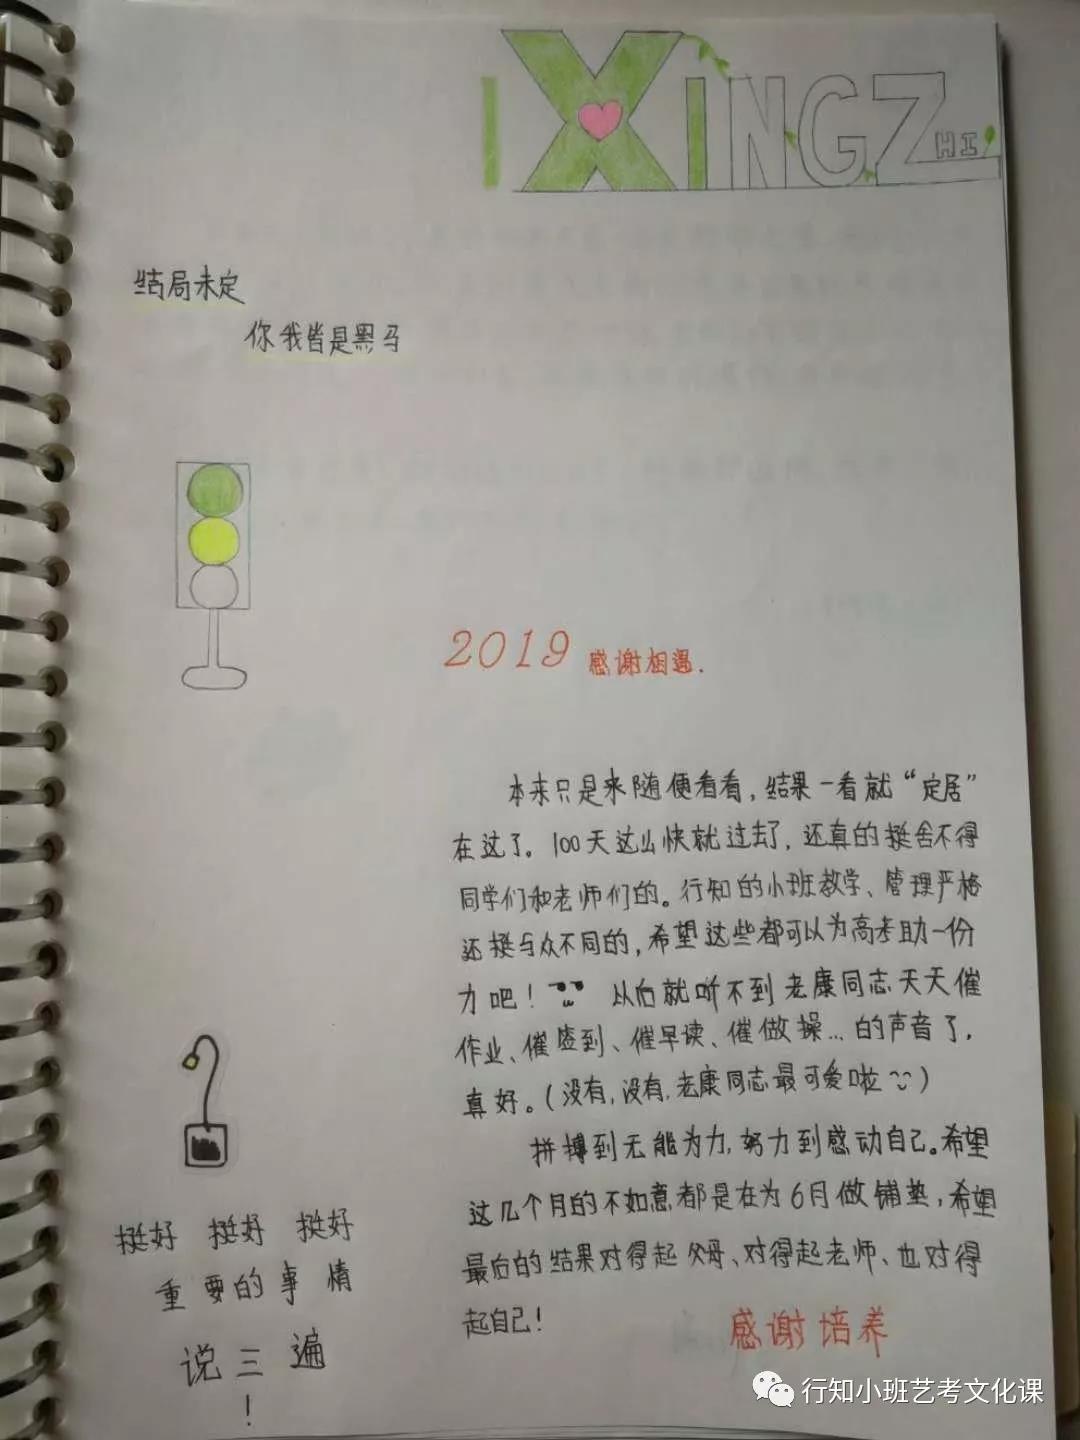 I XINGZHI
结局未定
你我皆是黑马
2019 感谢相遇.
本来只是来随便看看，结果一看就“定居”
在这了。100天这么快就过去了，还真的挺舍不得
同学们和老师们的。行知的小班教学、管理严格
还挺与众不同的，希望这些都可以为高考助一份
力吧！ 从后就听不到老康同志天天催
作业、催签到、催早读、催做操…的声音了，
真好。（没有，没有，老康同志最可爱啦）
拼搏到无能为力，努力到感动自己。希望
这几个月的不如意都是在为6月做铺垫，希望
最后的结果对得起父母、对得起老师、也对得
起自己！
感谢培养
挺好 挺好 挺好
重要的事情
说三遍
！
行知小班艺考文化课